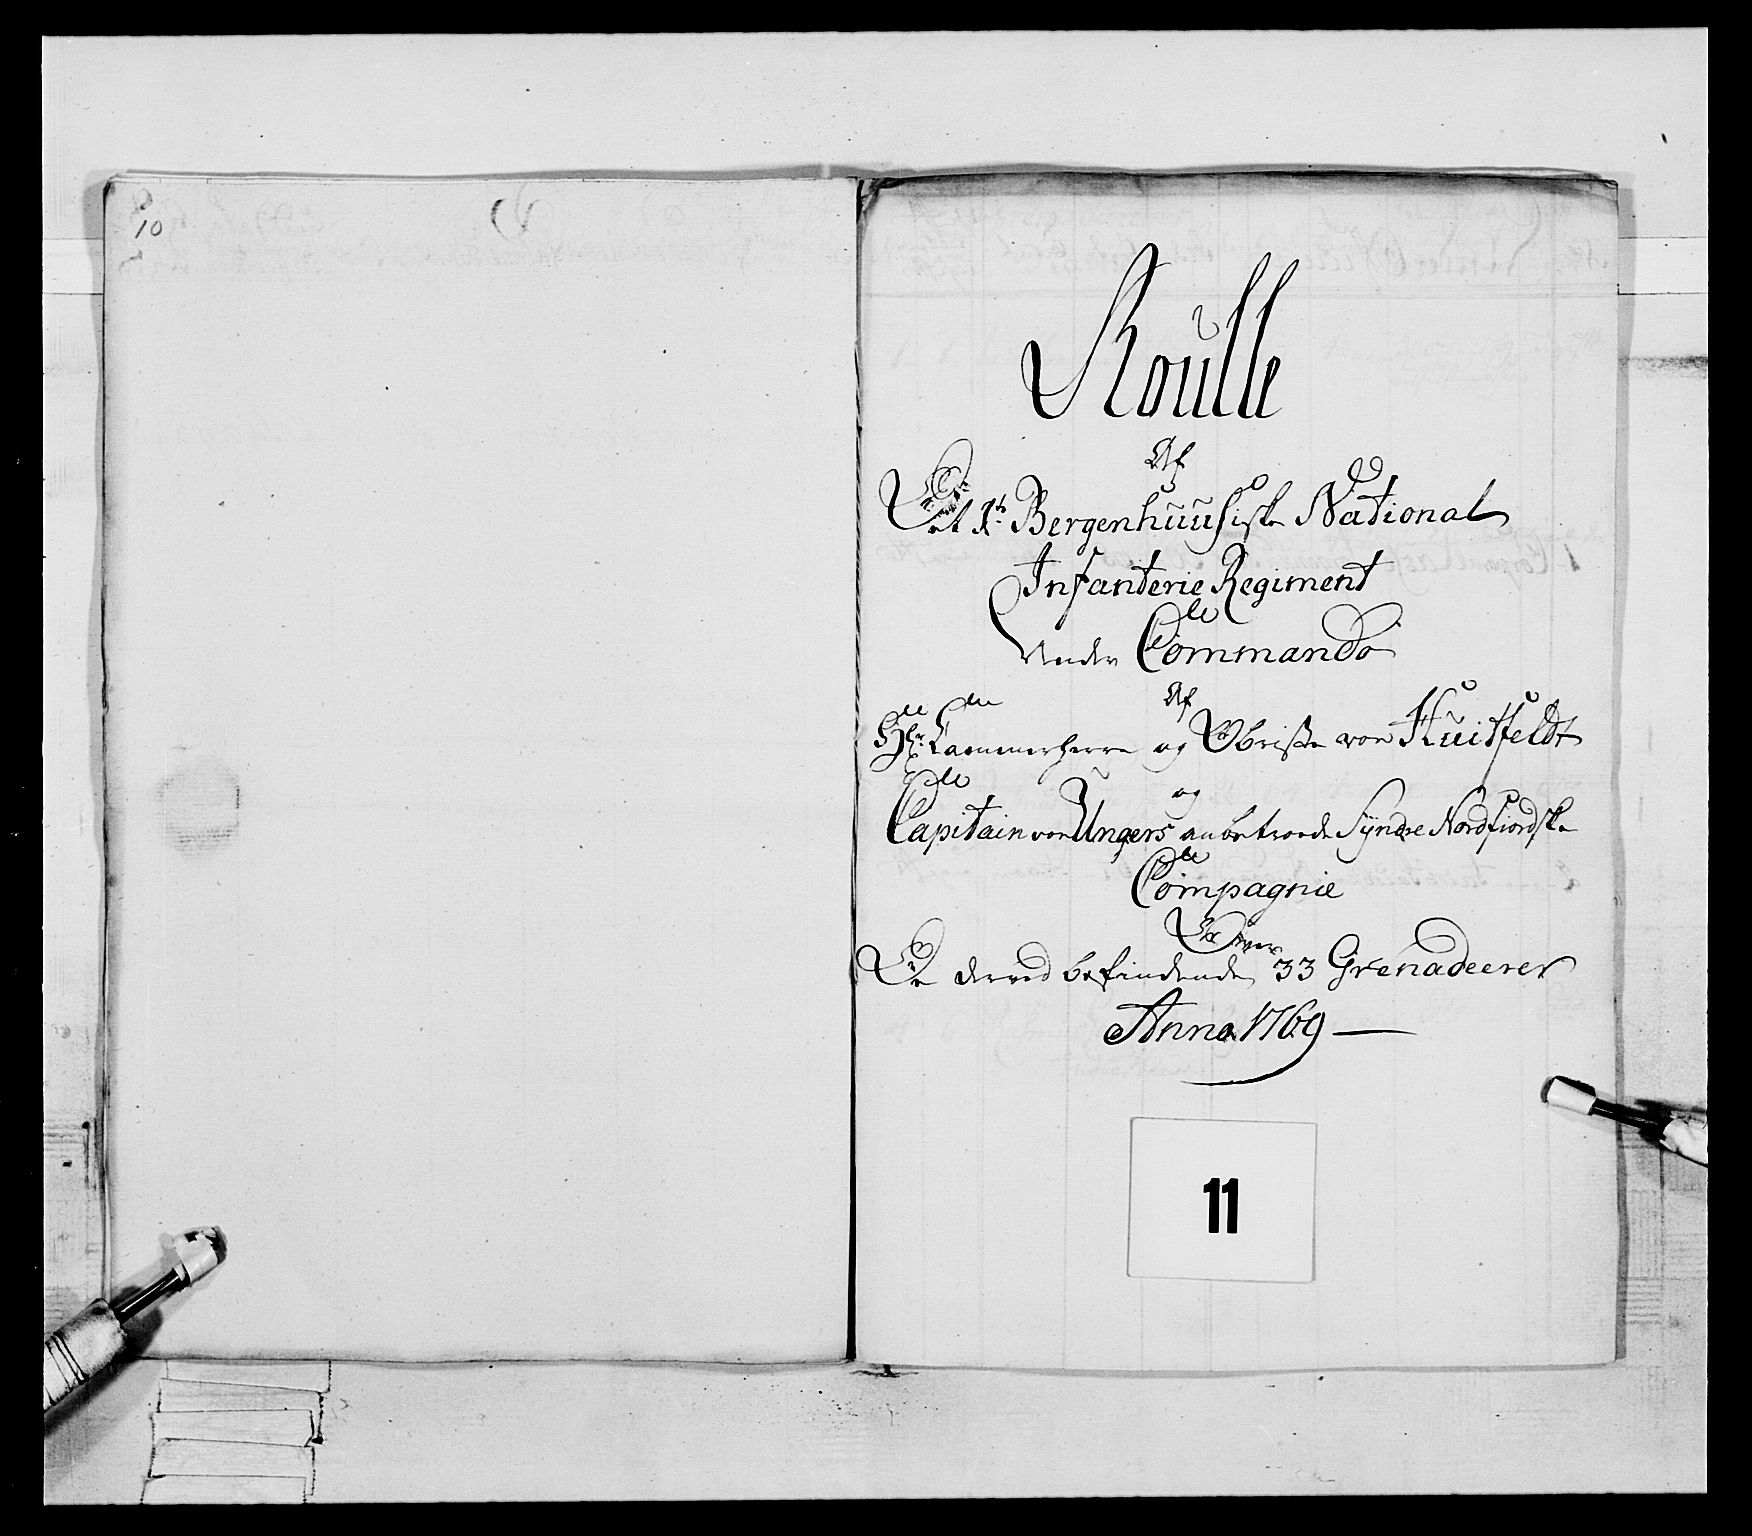 10
Roulle
Af
Det 1te Bergenhuusiske National
Infanterie Regiment
Under Commando
Af
Hr Cammerherre og Obriste von Huitfeldt
og
Capitain von Ungers anbetroede Syndre Nordfiordske
Compagnie
Over
De derved befindende 33 Grenadeerer
Anno 1769
11